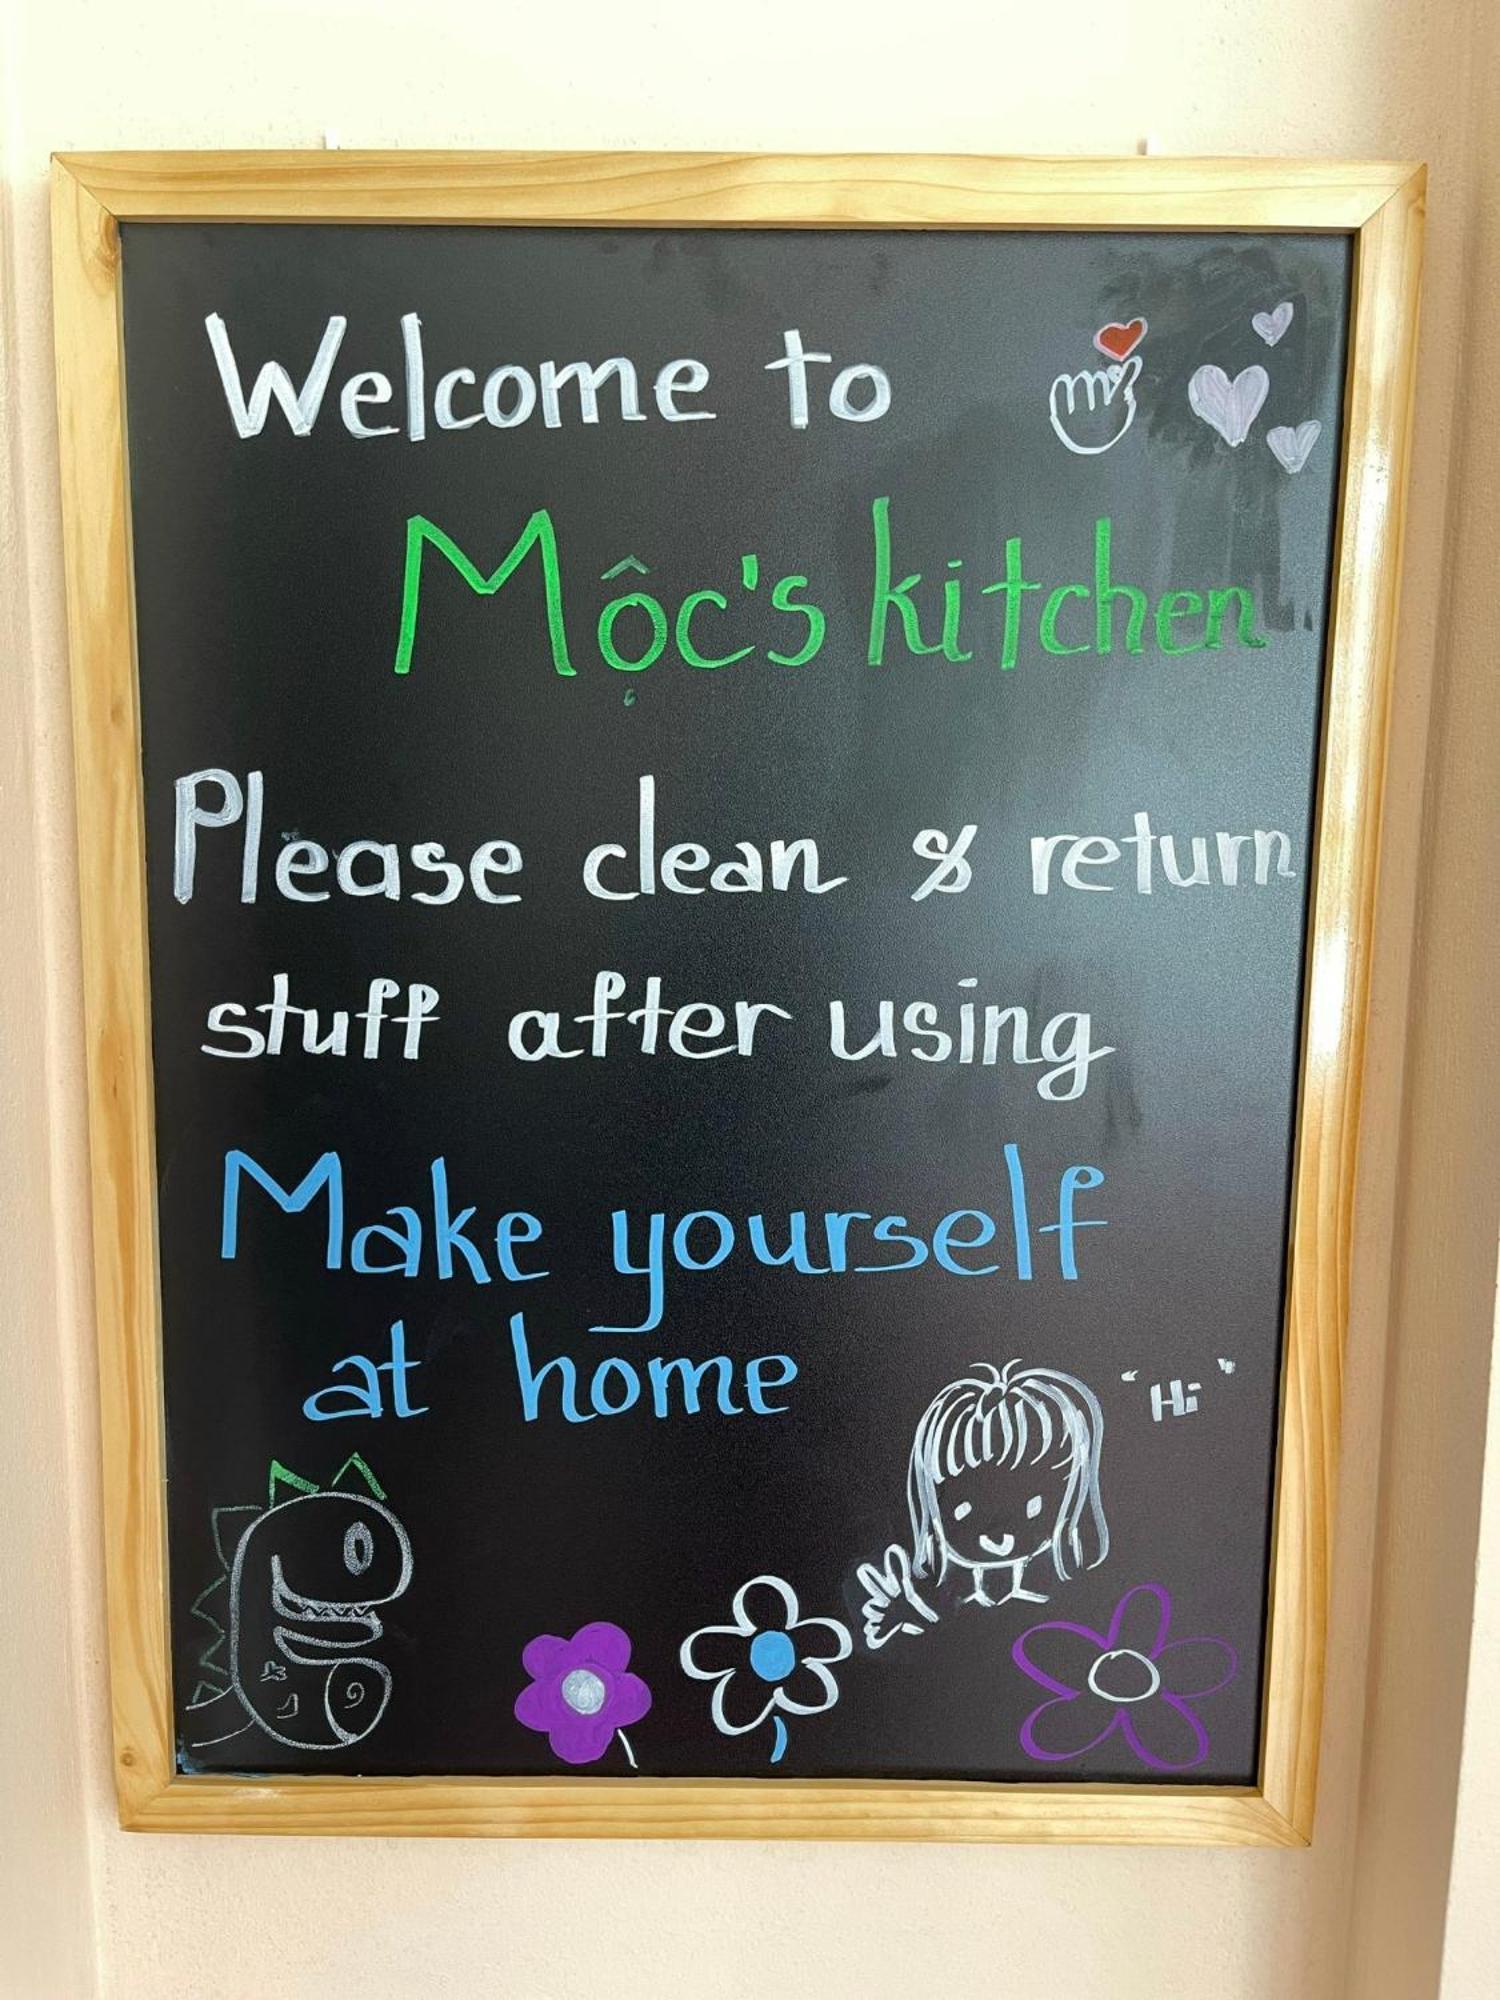 Welcome to
Mộc's kitchen
Please clean & return
stuff after using
Make yourself
at home
"Hi"